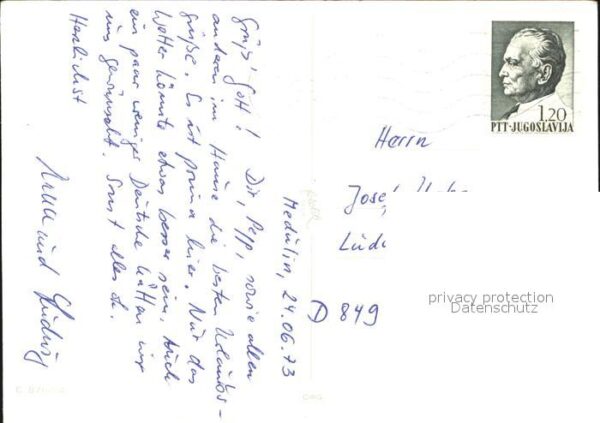 Medulin, 24.06.73
Grüß' Gott! Dir, Pepp, sowie allen
anderen im Hause die besten Urlaubs-
grüße. Es ist prima hier. Nur das
Wetter könnte etwas besser sein. Auch
ein paar weniger Deutsche hätten wir
uns gewünscht. Sonst alles o.k.
Herzlichst
und Ludwig
1.20
PTT-JUGOSLAVIJA
Herrn
Josef
D 849
privacy protection
Datenschutz